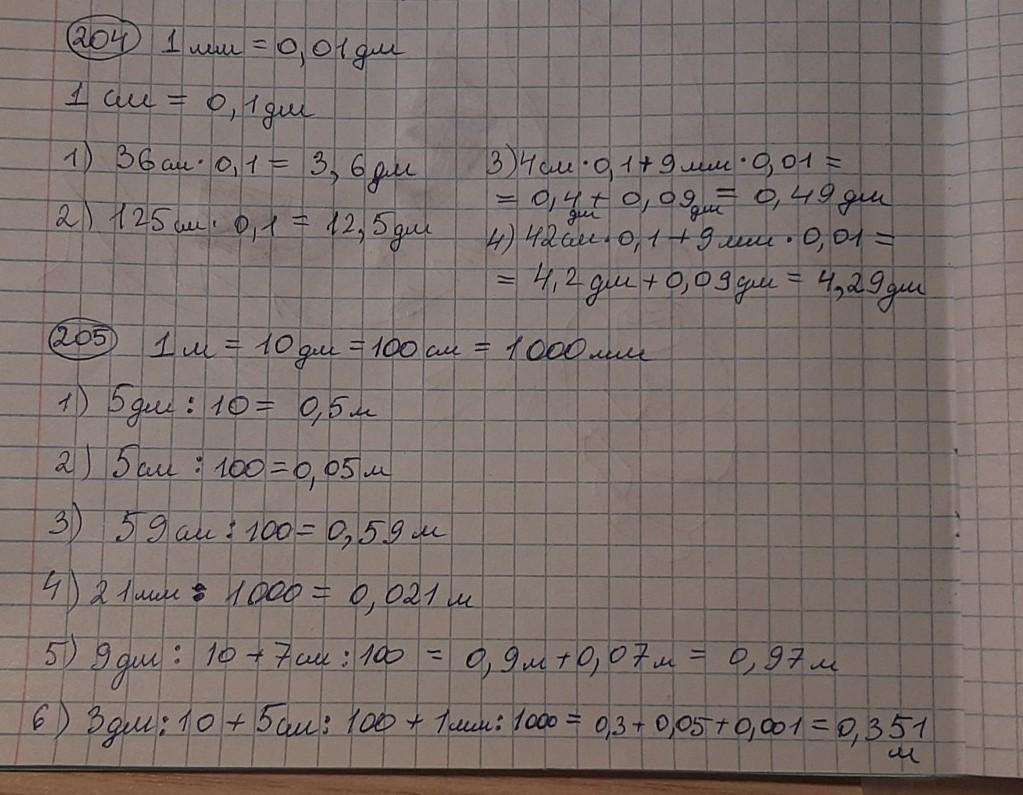 204 1 мм = 0,01 дм
1 см = 0,1 дм
1) 36 см · 0,1 = 3,6 дм
2) 125 см · 0,1 = 12,5 дм
3) 4 см · 0,1 + 9 мм · 0,01 =
= 0,4 дм + 0,09 дм = 0,49 дм
4) 42 см · 0,1 + 9 мм · 0,01 =
= 4,2 дм + 0,09 дм = 4,29 дм
205 1 м = 10 дм = 100 см = 1000 мм
1) 5 дм : 10 = 0,5 м
2) 5 см : 100 = 0,05 м
3) 59 см : 100 = 0,59 м
4) 21 мм : 1000 = 0,021 м
5) 9 дм : 10 + 7 см : 100 = 0,9 м + 0,07 м = 0,97 м
6) 3 дм : 10 + 5 см : 100 + 1 мм : 1000 = 0,3 + 0,05 + 0,001 = 0,351
м